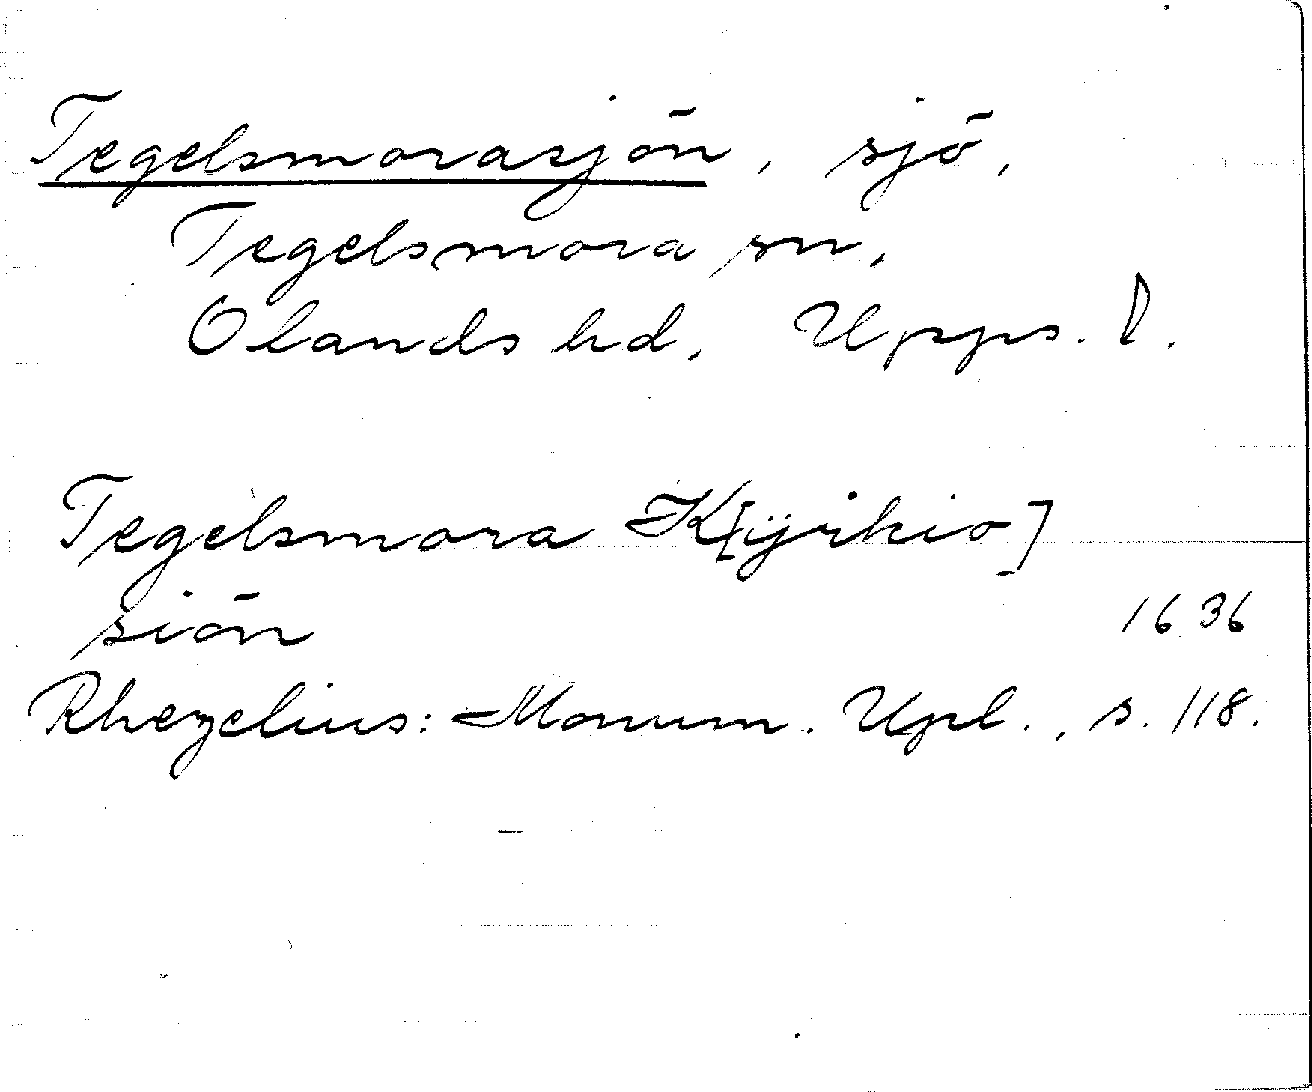 Tegelsmorasjön, sjö,
Tegelsmora sn,
Olands hd, Upps. l.
Tegelsmora K[ÿrkio]
siön 1636
Rhezelius: Monum. Upl., s. 118.